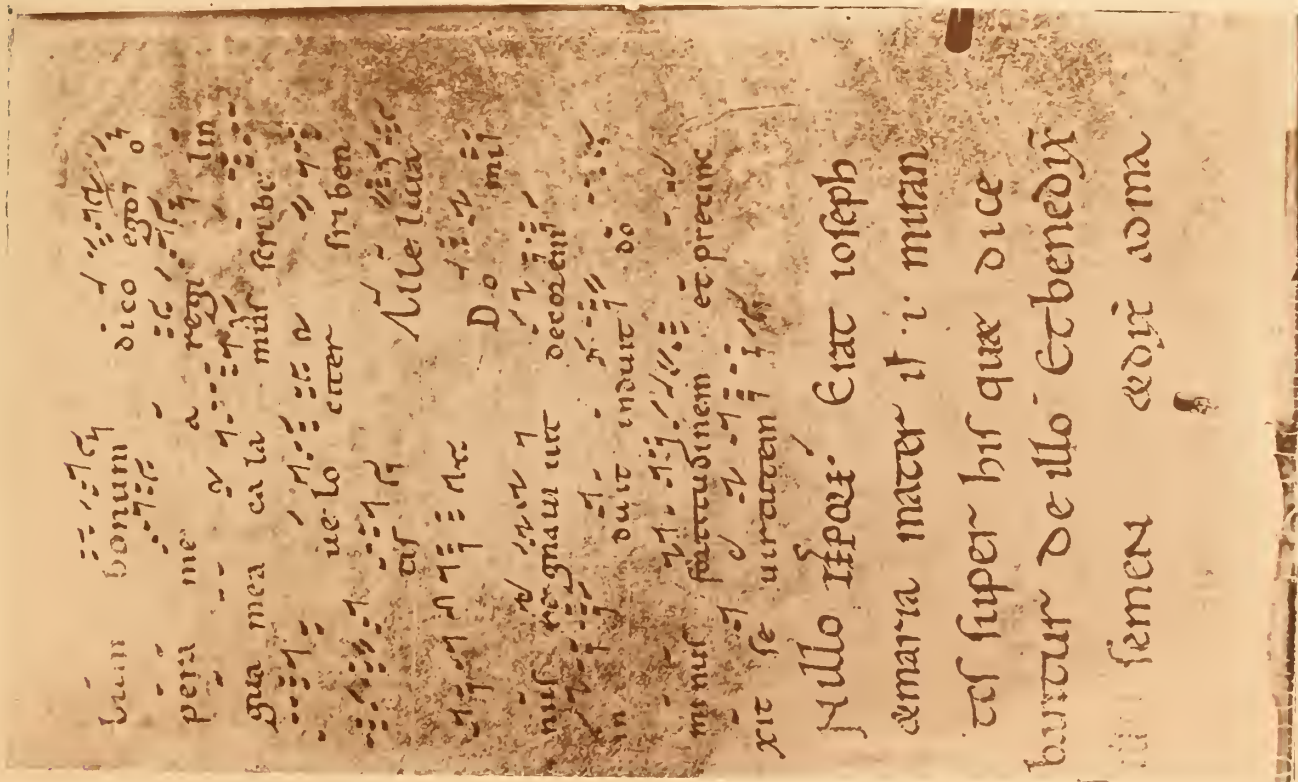 bum bonum dico ego o
pera me a regi lin
gua mea ca la muſ ſcribe
ue lo citer ſcriben
tiſ Alleluia
Do mi
nuſ regnauit decorem
in duit induit do
minuſ fortitudinem et precinc
xit ſe uirtutem
N illo tp̄re· Erat ioſeph
& maria mater ih̄i· miran
teſ ſuper hiſ quæ dice
bantur de illo· Et benedix̄
ſemen ædix̄ ad ma